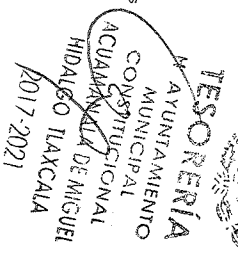 TESORERÍA
AYUNTAMIENTO
MUNICIPAL
CONSTITUCIONAL
ACUAMANALA DE MIGUEL
HIDALGO TLAXCALA
2017-2021